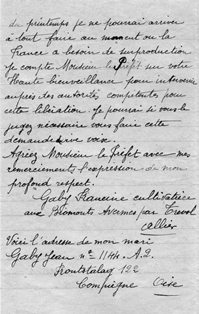 du printemps je ne pourrai arriver
à tout faire au moment ou la
France a besoin de surproduction
Je compte Monsieur le Préfet sur votre
Haute bienveillance pour intervenir
auprès des autorités compétentes pour
cette libération Je pourrai si vous le
jugez nécessaire vous faire cette
demande de vive voix.
Agréez Monsieur le Préfet avec mes
remerciements l'expression de mon
profond respect.
Gaby Francine cultivatrice
aux Avermes par Trevol
Allier
Voici l'adresse de mon mari
Gaby Jean n° 1144. A.2.
Frontstalag 122
Compiègne Oise